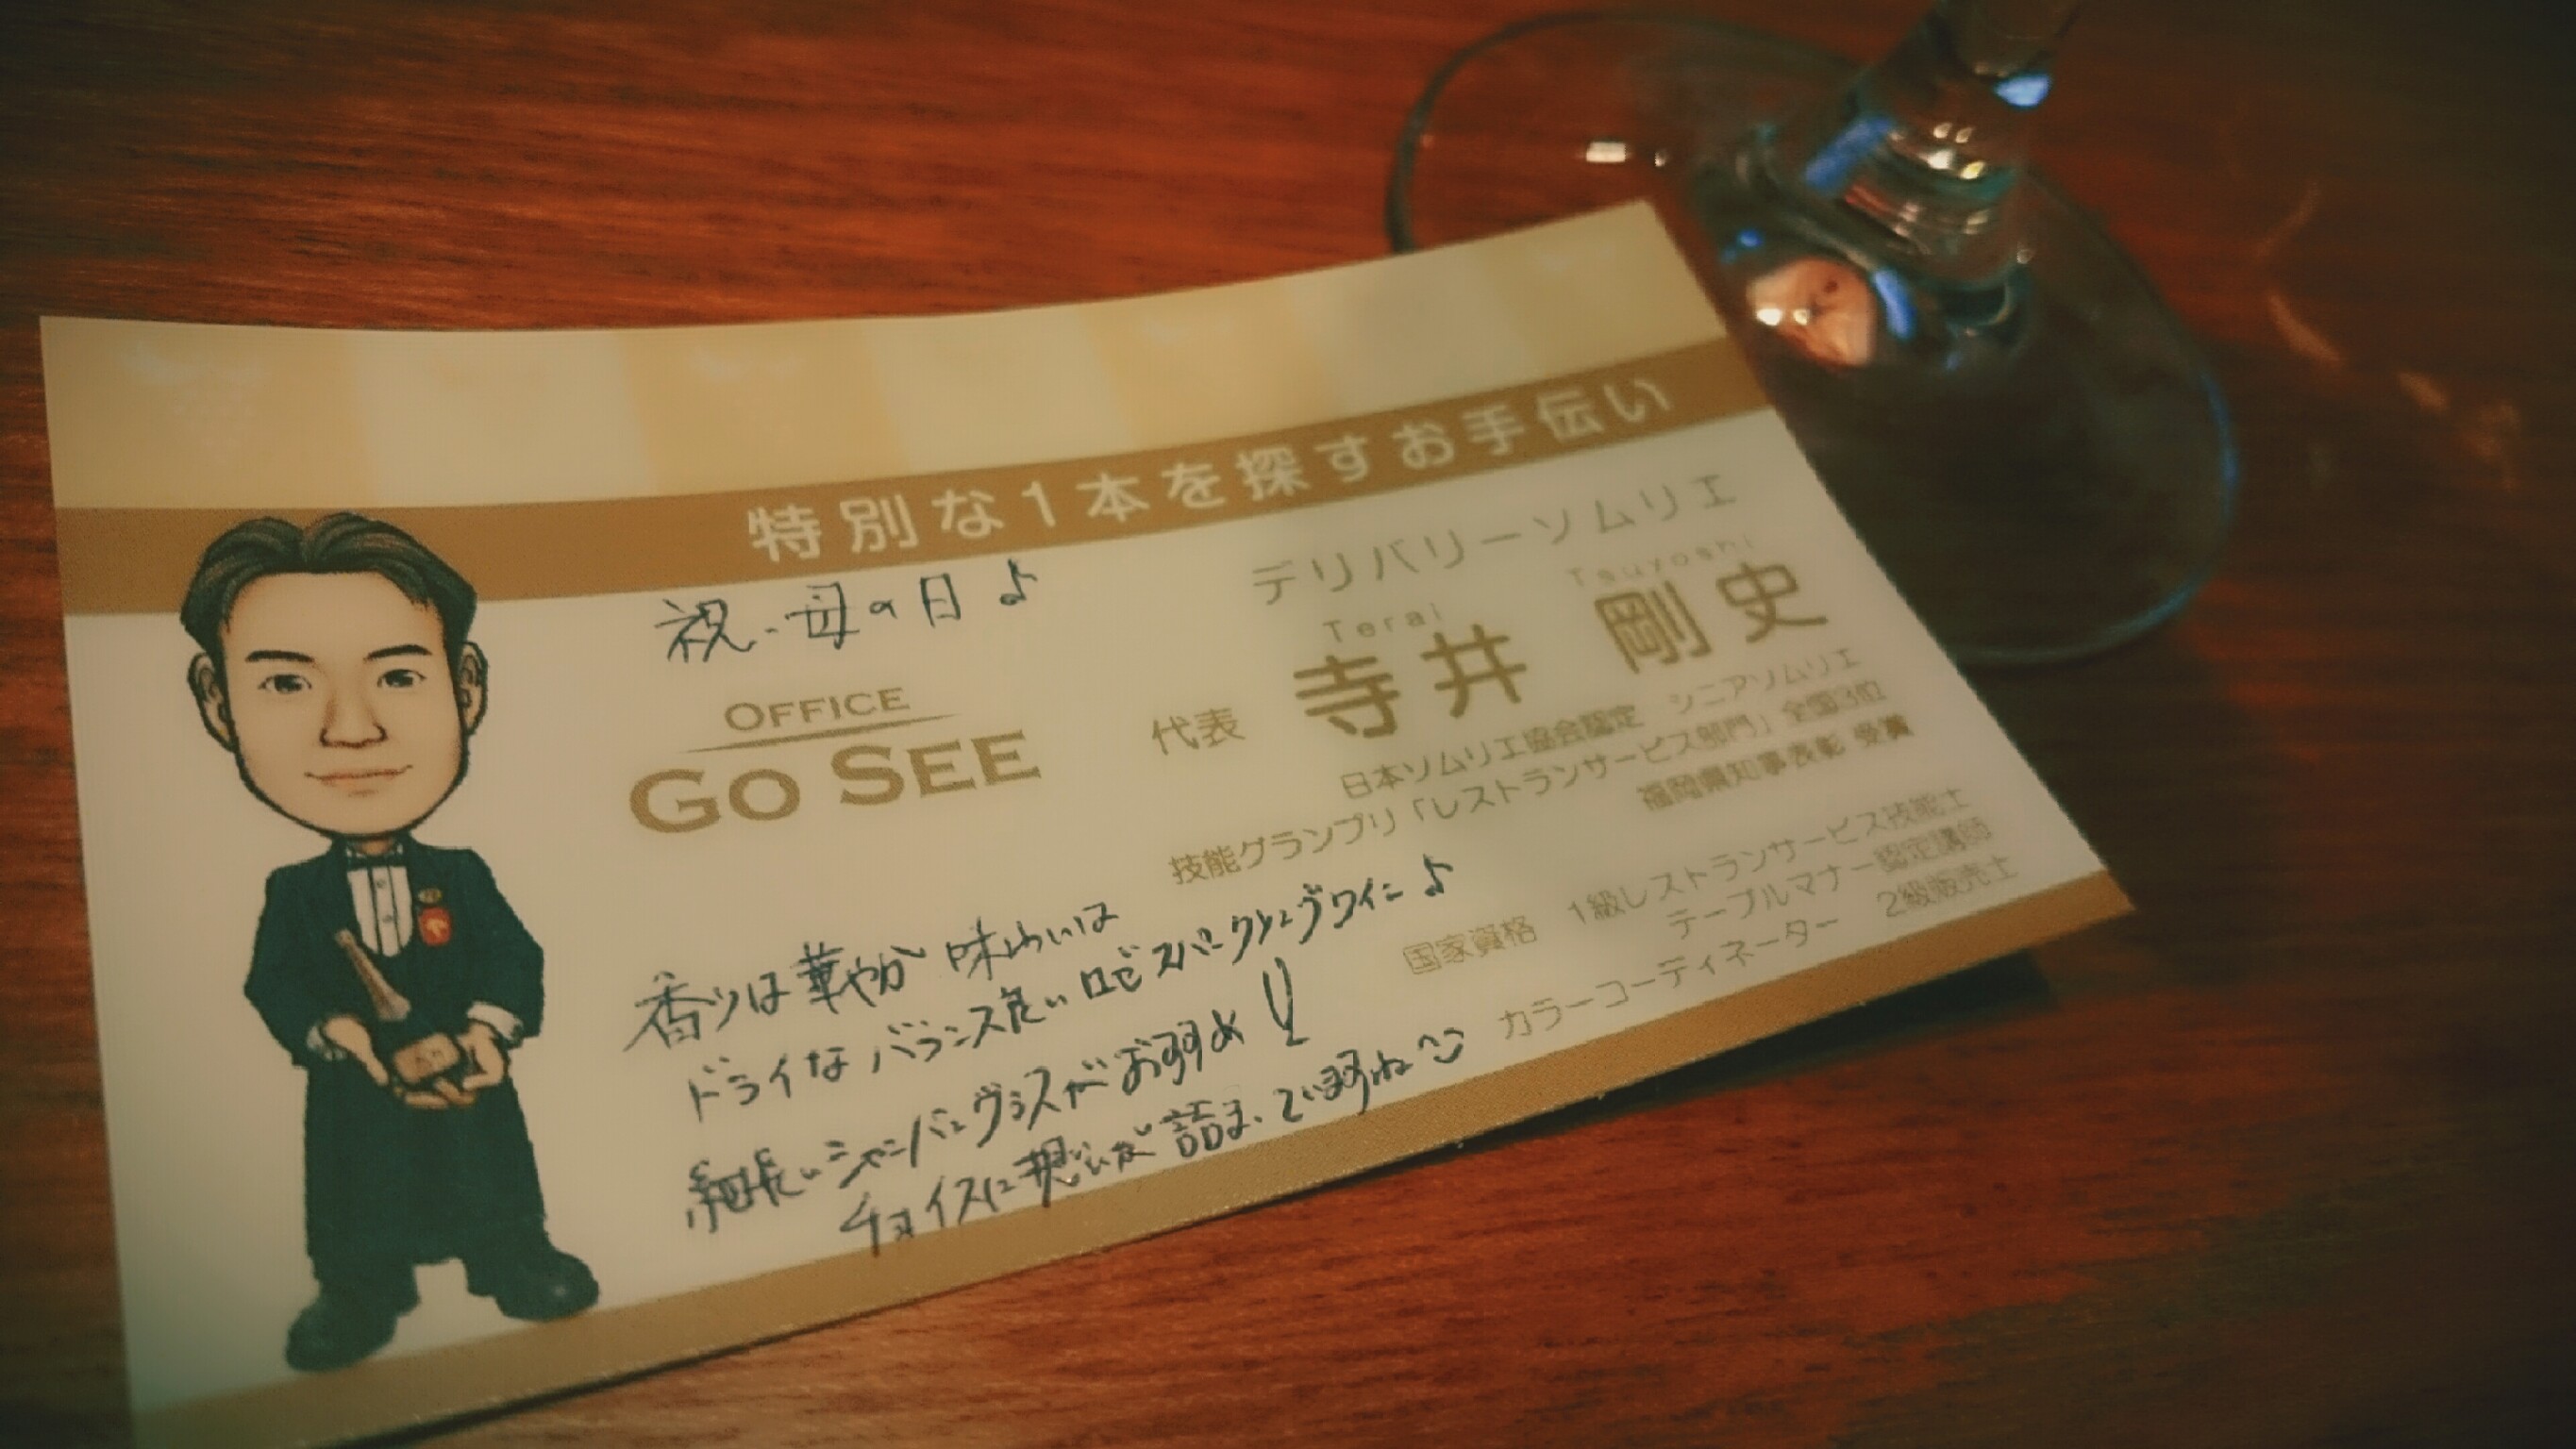 特別な1本を探すお手伝い
祝・母の日♪
デリバリーソムリエ
Terai Tsuyoshi
代表 寺井 剛史
OFFICE
GO SEE
日本ソムリエ協会認定 シニアソムリエ
技能グランプリ「レストランサービス部門」全国3位
福岡県知事表彰 受賞
国家資格 1級レストランサービス技能士
テーブルマナー認定講師
カラーコーディネーター 2級販売士
香りは華やか 味わいは
ドライな バランス良い ロゼスパークリングワイン♪
細長いシャンパングラスがおすすめ!!
チョイスに想いが詰まっていますね